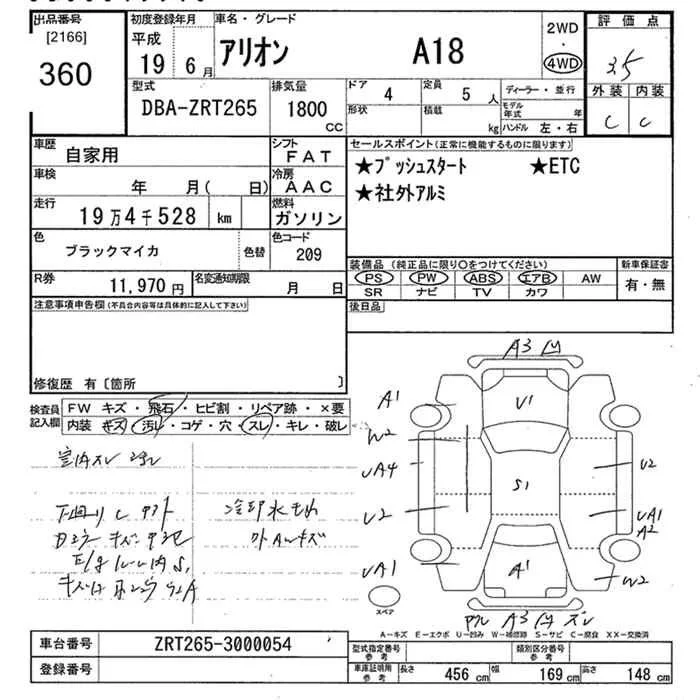 出品番号
[2166]
360
初度登録年月
平成
19 6月
車名・グレード
アリオン A18
2WD
・
4WD
評価点
3.5
外装 内装
C C
型式
DBA-ZRT265
排気量
1800
CC
ドア
4
定員
5 人
形状
積載
kg
ディーラー・並行
モデル年式 年
ハンドル 左・右
車歴
自家用
シフト
FAT
車検
年 月(日)
冷房
AAC
走行
19万4千528 km
燃料
ガソリン
色
ブラックマイカ
色替
色コード
209
R券
11,970円
名変通知期限
月 日
セールスポイント(正常に機能するものに限ります)
★プッシュスタート ★ETC
★社外アルミ
装備品(純正品に限り○をつけてください)
PS PW ABS エアB AW
SR ナビ TV カワ
新車保証書
有・無
後日品
注意事項申告欄(不具合内容等は具体的に記入して下さい)
修復歴 有〔箇所 〕
検査員記入欄
FW キズ・飛石・ヒビ割・リペア跡・×要
内装 キズ・汚れ・コゲ・穴・スレ・キレ・破レ
室内スレ
下廻り
冷却水
A3 凹
A1
U1
W2
UA4
U2
UA1
S1
U2
UA1
A2
W2
A1
スペア
A3
A-キズ E-エクボ U-凹み W-補修跡 S-サビ C-腐食 XX-交換済
車台番号
ZRT265-3000054
登録番号
型式指定番号
参考
類別区分番号
参考
車庫証明用
参考
長さ 456 cm 幅 169 cm 高さ 148 cm